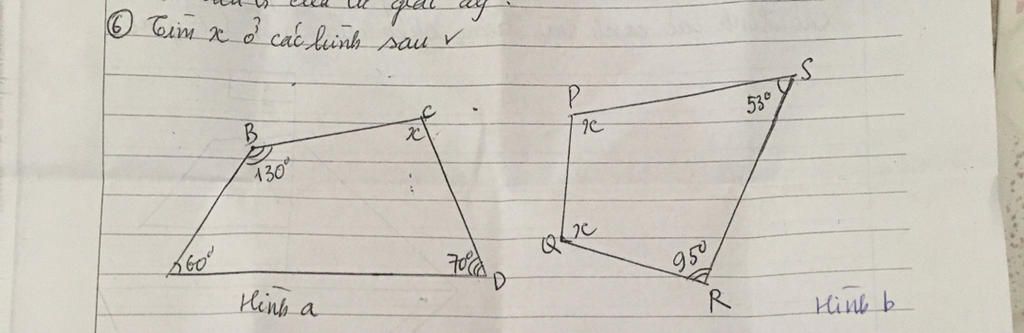 giải ấy.
⑥ Tìm x ở các hình sau
B
C
x
130°
60°
70°
D
Hình a
P
S
53°
x
Q
x
95°
R
Hình b